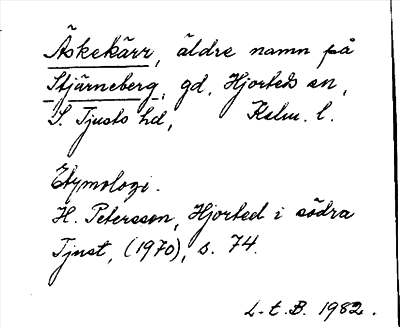 Äskekärr, äldre namn på
Stjärneberg, gd, Hjorteds sn,
S. Tjusts hd, Kalm. l.
Etymologi.
H. Petersson, Hjorted i södra
Tjust, (1970), s. 74.
L-t. B. 1982.